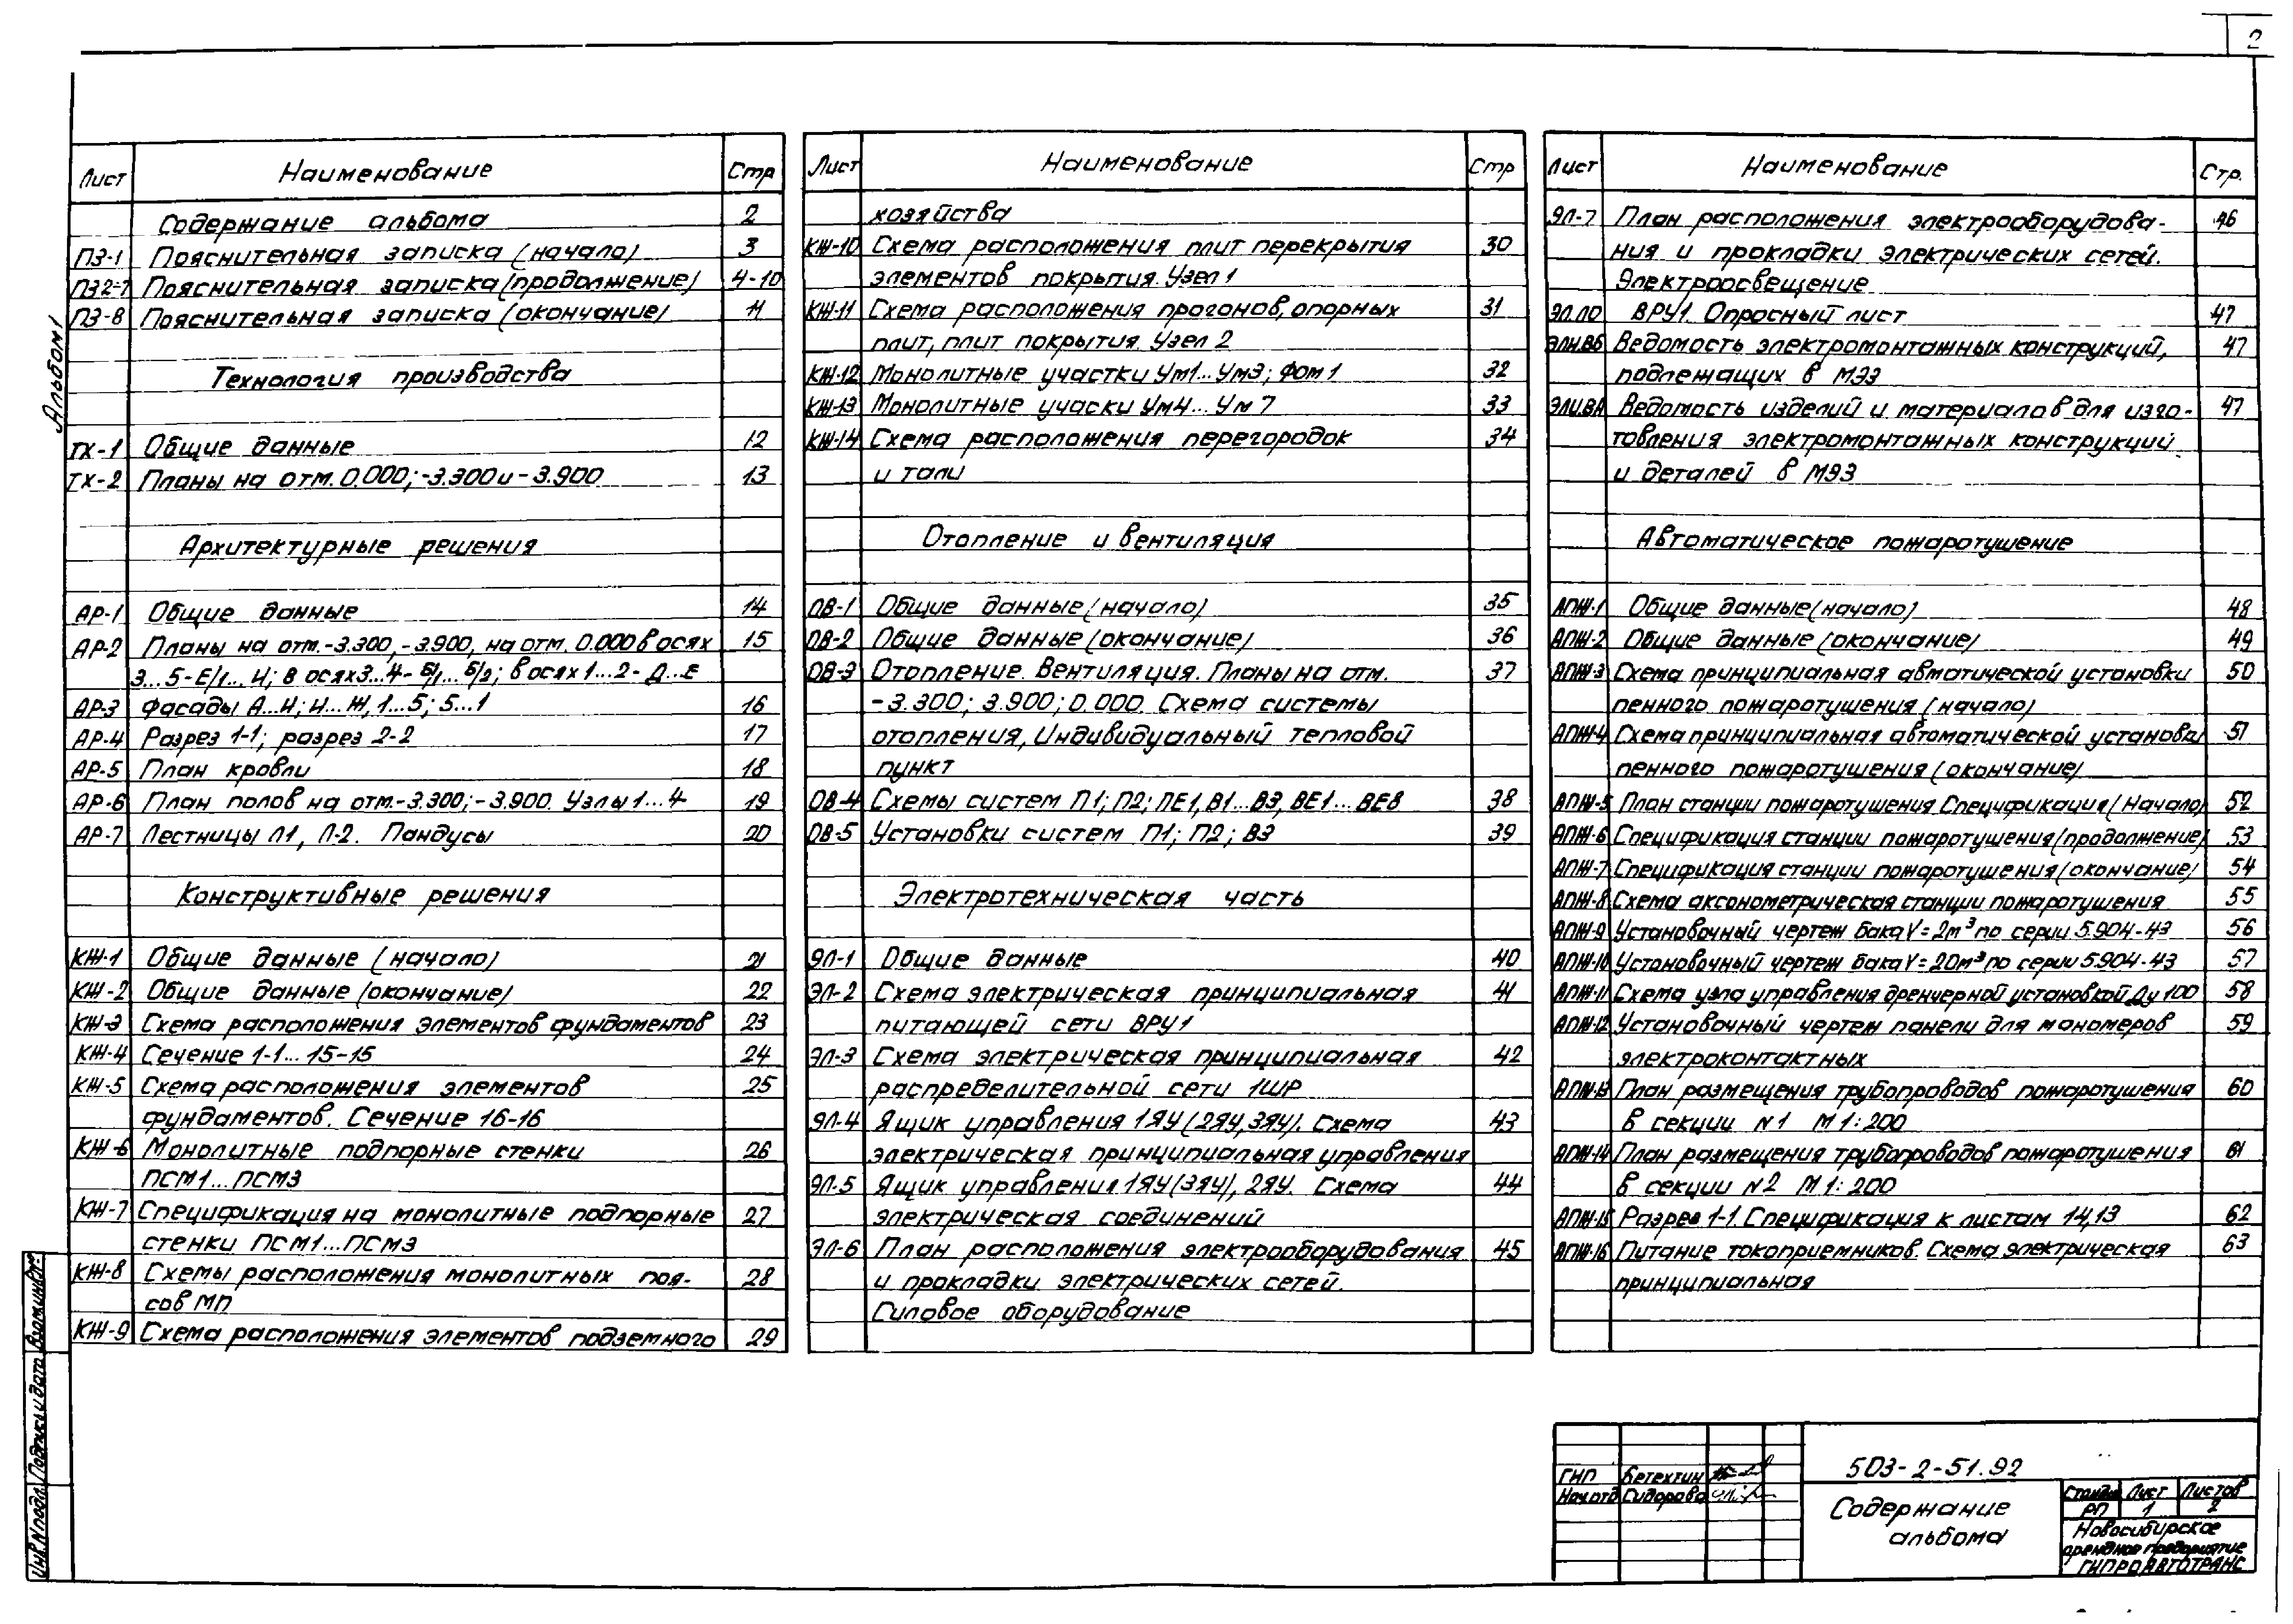 2
Альбом 1
Лист Наименование Стр
Содержание альбома 2
ПЗ-1 Пояснительная записка (начало) 3
ПЗ2-7 Пояснительная записка (продолжение) 4-10
ПЗ-8 Пояснительная записка (окончание) 11
Технология производства
ТХ-1 Общие данные 12
ТХ-2 Планы на отм. 0.000; -3.300 и -3.900 13
Архитектурные решения
АР-1 Общие данные 14
АР-2 Планы на отм. -3.300, -3.900, на отм. 0.000 в осях 15
3...5-Е/1...И; в осях 3...4-Б/1...Б/2; в осях 1...2-Д...Е
АР-3 Фасады А...И; И...Ж, 1...5; 5...1 16
АР-4 Разрез 1-1; разрез 2-2 17
АР-5 План кровли 18
АР-6 План полов на отм. -3.300; -3.900. Узлы 1...4 19
АР-7 Лестницы Л1, Л-2. Пандусы 20
Конструктивные решения
КЖ-1 Общие данные (начало) 21
КЖ-2 Общие данные (окончание) 22
КЖ-3 Схема расположения элементов фундаментов 23
КЖ-4 Сечение 1-1... 15-15 24
КЖ-5 Схема расположения элементов 25
фундаментов. Сечение 16-16
КЖ-6 Монолитные подпорные стенки 26
ПСМ1...ПСМ3
КЖ-7 Спецификация на монолитные подпорные 27
стенки ПСМ1...ПСМ3
КЖ-8 Схемы расположения монолитных поя- 28
сов МП
КЖ-9 Схема расположения элементов подземного 29
Лист Наименование Стр
хозяйства
КЖ-10 Схема расположения плит перекрытия 30
элементов покрытия. Узел 1
КЖ-11 Схема расположения прогонов, опорных 31
плит, плит покрытия. Узел 2
КЖ-12 Монолитные участки Ум1... Ум3; Фом1 32
КЖ-13 Монолитные учаски Ум4... Ум7 33
КЖ-14 Схема расположения перегородок 34
и тали
Отопление и вентиляция
ОВ-1 Общие данные (начало) 35
ОВ-2 Общие данные (окончание) 36
ОВ-3 Отопление. Вентиляция. Планы на отм. 37
-3.300; 3.900; 0.000. Схема системы
отопления, Индивидуальный тепловой
пункт
ОВ-4 Схемы систем П1; П2; ПЕ1, В1...В3, ВЕ1... ВЕ8 38
ОВ-5 Установки систем П1; П2; В3 39
Электротехническая часть
ЭЛ-1 Общие данные 40
ЭЛ-2 Схема электрическая принципиальная 41
питающей сети ВРУ1
ЭЛ-3 Схема электрическая принципиальная 42
распределительной сети 1ШР
ЭЛ-4 Ящик управления 1ЯУ (2ЯУ, 3ЯУ). Схема 43
электрическая принципиальная управления
ЭЛ-5 Ящик управления 1ЯУ (3ЯУ), 2ЯУ. Схема 44
электрическая соединений
ЭЛ-6 План расположения электрооборудования 45
и прокладки электрических сетей.
Силовое оборудование
Лист Наименование Стр.
ЭЛ-7 План расположения электрооборудова- 46
ния и прокладки электрических сетей.
Электроосвещение
ЭЛ.ЛО ВРУ1. Опросный лист 47
ЭЛИ.ВБ Ведомость электромонтажных конструкций, 47
подлежащих в МЭЗ
ЭЛИ.ВА Ведомость изделий и материалов для изго- 47
товления электромонтажных конструкций
и деталей в МЭЗ
Автоматическое пожаротушение
АПЖ-1 Общие данные (начало) 48
АПЖ-2 Общие данные (окончание) 49
АПЖ-3 Схема принципиальная автматической установки 50
пенного пожаротушения (начало)
АПЖ-4 Схема принципиальная автоматической установки 51
пенного пожаротушения (окончание)
АПЖ-5 План станции пожаротушения. Спецификация (Начало) 52
АПЖ-6 Спецификация станции пожаротушения (продолжение) 53
АПЖ-7 Спецификация станции пожаротушения (окончание) 54
АПЖ-8 Схема аксонометрическая станции пожаротушения 55
АПЖ-9 Установочный чертеж бака V=2м³ по серии 5.904-43 56
АПЖ-10 Установочный чертеж бака V=20м³ по серии 5.904-43 57
АПЖ-11 Схема узла управления дренчерной установкой Ду 100 58
АПЖ-12 Установочный чертеж панели для маномеров 59
электроконтактных
АПЖ-13 План размещения трубопроводов пожаротушения 60
в секции N1 М 1:200
АПЖ-14 План размещения трубопроводов пожаротушения 61
в секции N2 М 1:200
АПЖ-15 Разрез 1-1. Спецификация к листам 14,13 62
АПЖ-16 Питание токоприемников. Схема электрическая 63
принципиальная
Инв.N подл. Подпись и дата Взам.инв.N
503-2-51.92
ГИП Бетехтин
Нач.отд Сидорова
Содержание
альбома
Стадия Лист Листов
РП 1 2
Новосибирское
арендное предприятие
ГИПРОАВТОТРАНС